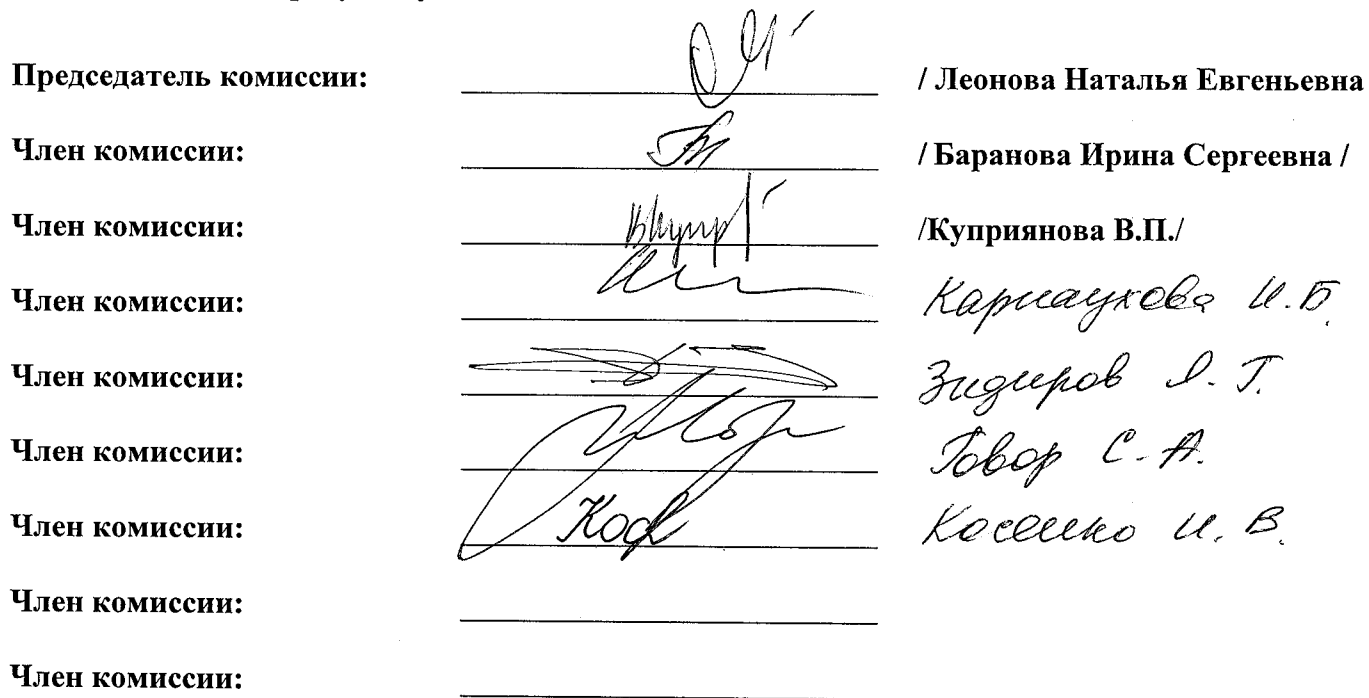 Председатель комиссии: / Леонова Наталья Евгеньевна
Член комиссии: / Баранова Ирина Сергеевна /
Член комиссии: /Куприянова В.П./
Член комиссии: Карнаухова И.Б.
Член комиссии: Зидиров Я.Г.
Член комиссии: Говор С.А.
Член комиссии: Косенко И.В.
Член комиссии:
Член комиссии: